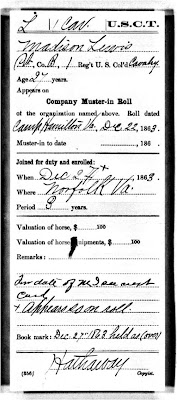 L | 1 Cav. | U.S.C.T.
Madison Lewis
Pvt., Co. B, 1 Reg't U. S. Col'd Cavalry.
Age 27 years.
Appears on
Company Muster-in Roll
of the organization named above. Roll dated
Camp Hamilton Va, Dec. 22, 1863.
Muster-in to date , 186
Joined for duty and enrolled:
When Dec 24 +, 1863.
Where Norfolk Va.
Period 3 years.
Valuation of horse, $ 100
Valuation of horse equipments, $ 100
Remarks:
For date of M.I. see next
card
+ Appears so on roll.
Book mark: Dec. 27-1863 held as (over)
Hathaway
(356) Copyist.